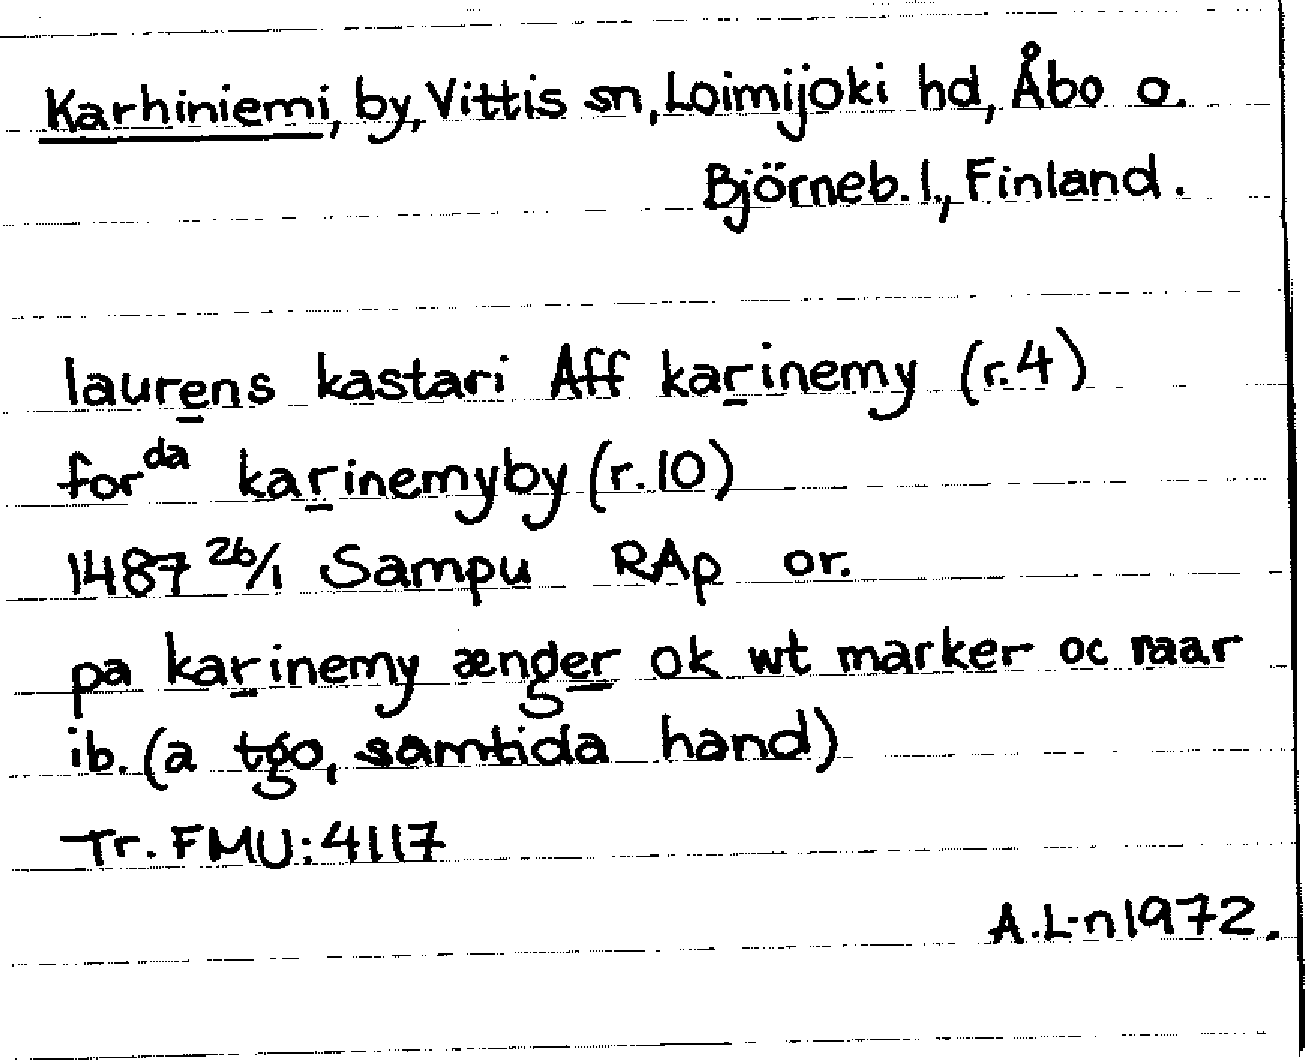 Karhiniemi, by, Vittis sn, Loimijoki hd, Åbo o.
Björneb. l., Finland.
laurens kastari Aff karinemy (r.4)
forda karinemyby (r.10)
1487 26/1 Sampu RAp or.
pa karinemy ænger ok wt marker oc naar
ib. (a tgo, samtida hand)
Tr. FMU: 4117
A.L-n 1972.